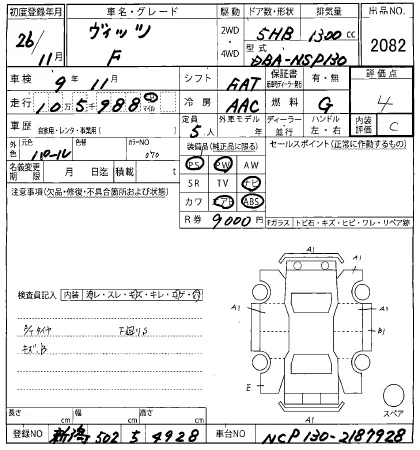 初度登録年月 車名・グレード 駆動 ドア数・形状 排気量 出品NO.
26/11月 ヴィッツ F 2WD・4WD 5HB 1300cc 2082
型式 DBA-NSP130
車検 9年 11月 シフト FAT 保証書 有・無 評価点 4
走行 10万5千988 マイル 冷房 AAC 燃料 G
車歴 自家用・レンタ・事業用( ) 定員 5人 外車モデル 年 ディーラー・並行 ハンドル 左・右 内装評価 C
外色 元色 色替 カラーNO 070 装備品(純正品に限る) セールスポイント(正常に作動するもの)
名義変更期限 月 日迄 積載 t PS PW AW
注意事項(欠品・修復・不具合箇所および状態) SR TV ナビ
カワ エアB ABS
R券 9000円 Fガラス トビ石・キズ・ヒビ・ワレ・リペア跡
A1
A1
A1 A1
検査員記入 内装
B1
下廻りS
E
A1
スペア
長さ cm 幅 cm 高さ cm
登録NO 新潟 502 5 4928 車台NO NCP130-2187928